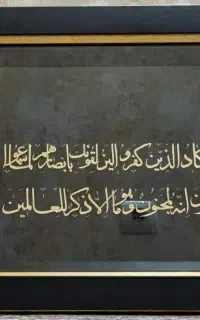 كاد الذين كفروا ليزلقونك بابصارهم لما سمعوا
ن انه لمجنون و ما هو الا ذكر للعالمين